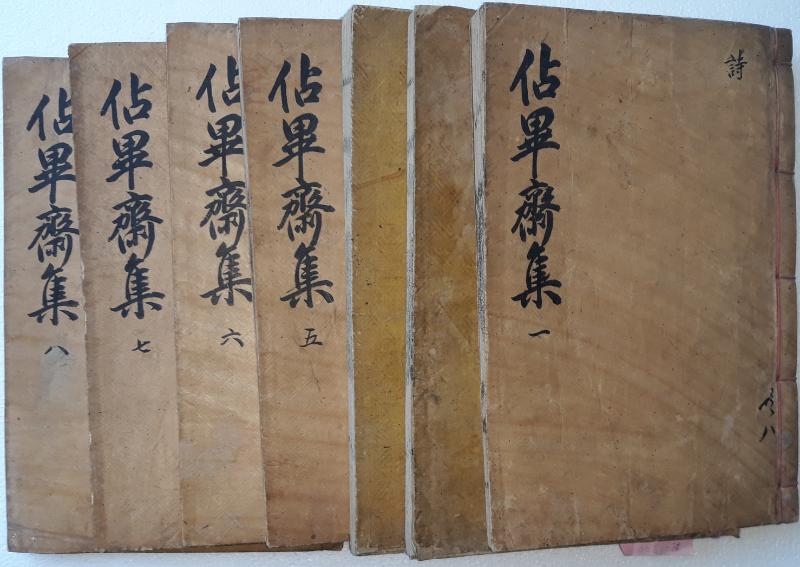 詩
佔畢齋集
一
佔畢齋集
五
佔畢齋集
六
佔畢齋集
七
佔畢齋集
八